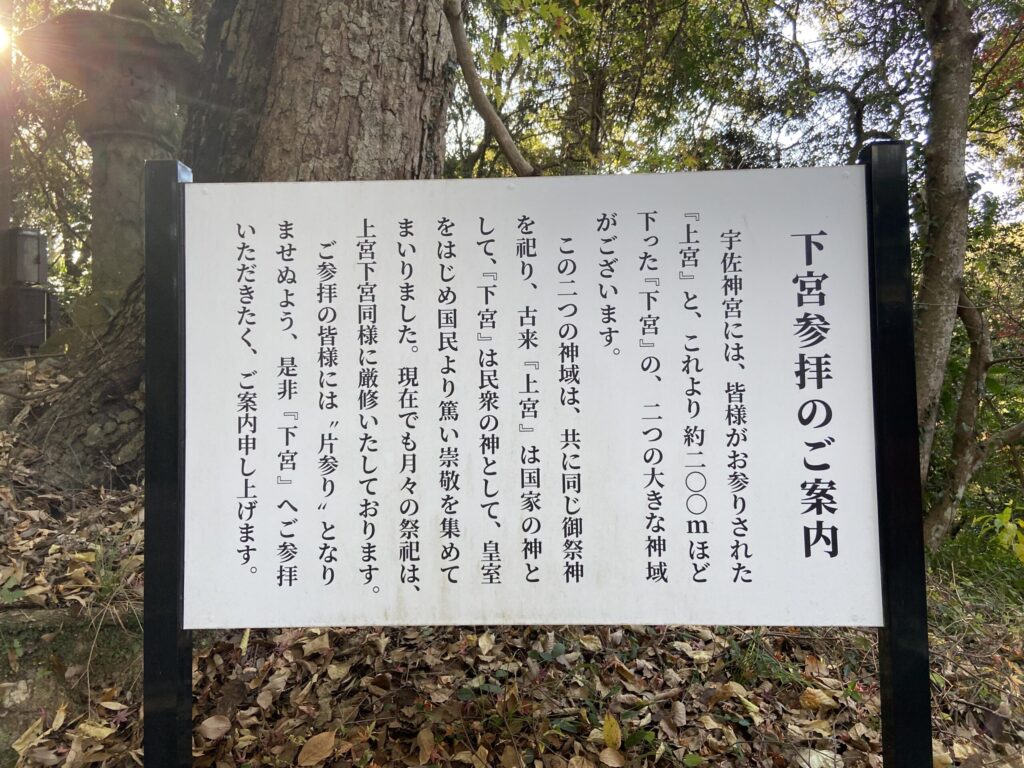 下宮参拝のご案内
宇佐神宮には、皆様がお参りされた
『上宮』と、これより約二〇〇mほど
下った『下宮』の、二つの大きな神域
がございます。
この二つの神域は、共に同じ御祭神
を祀り、古来『上宮』は国家の神と
して、『下宮』は民衆の神として、皇室
をはじめ国民より篤い崇敬を集めて
まいりました。現在でも月々の祭祀は、
上宮下宮同様に厳修いたしております。
ご参拝の皆様には〝片参り〟となり
ませぬよう、是非『下宮』へご参拝
いただきたく、ご案内申し上げます。